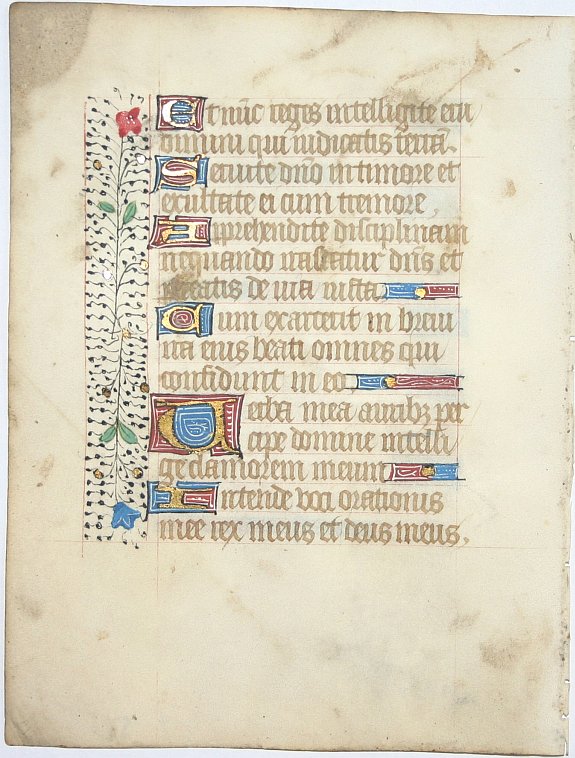 Et nūc reges intelligite eru
dimini qui iudicatis terrā.
Seruite dn̄o in timore et
exultate ei cum tremore.
Apprehendite disciplinam
nequando irascatur dn̄s et
pereatis de uia iusta
Cum exarcerit in breui
ira eius beati omnes qui
confidunt in eo.
Uerba mea auribꝫ per
cipe domine intelli
ge clamorem meum
Intende voci orationis
mee rex meus et deus meus.